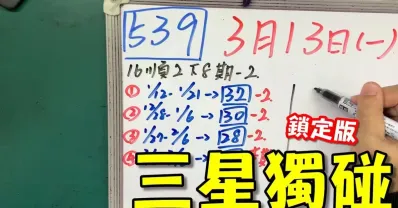 539 3月13日(一)
16順2下8期-2
① 1/12-1/21→32-2
② 12/28-1/6→30-2
③ 1/27-2/6→28-2
鎖定版
三星獨碰